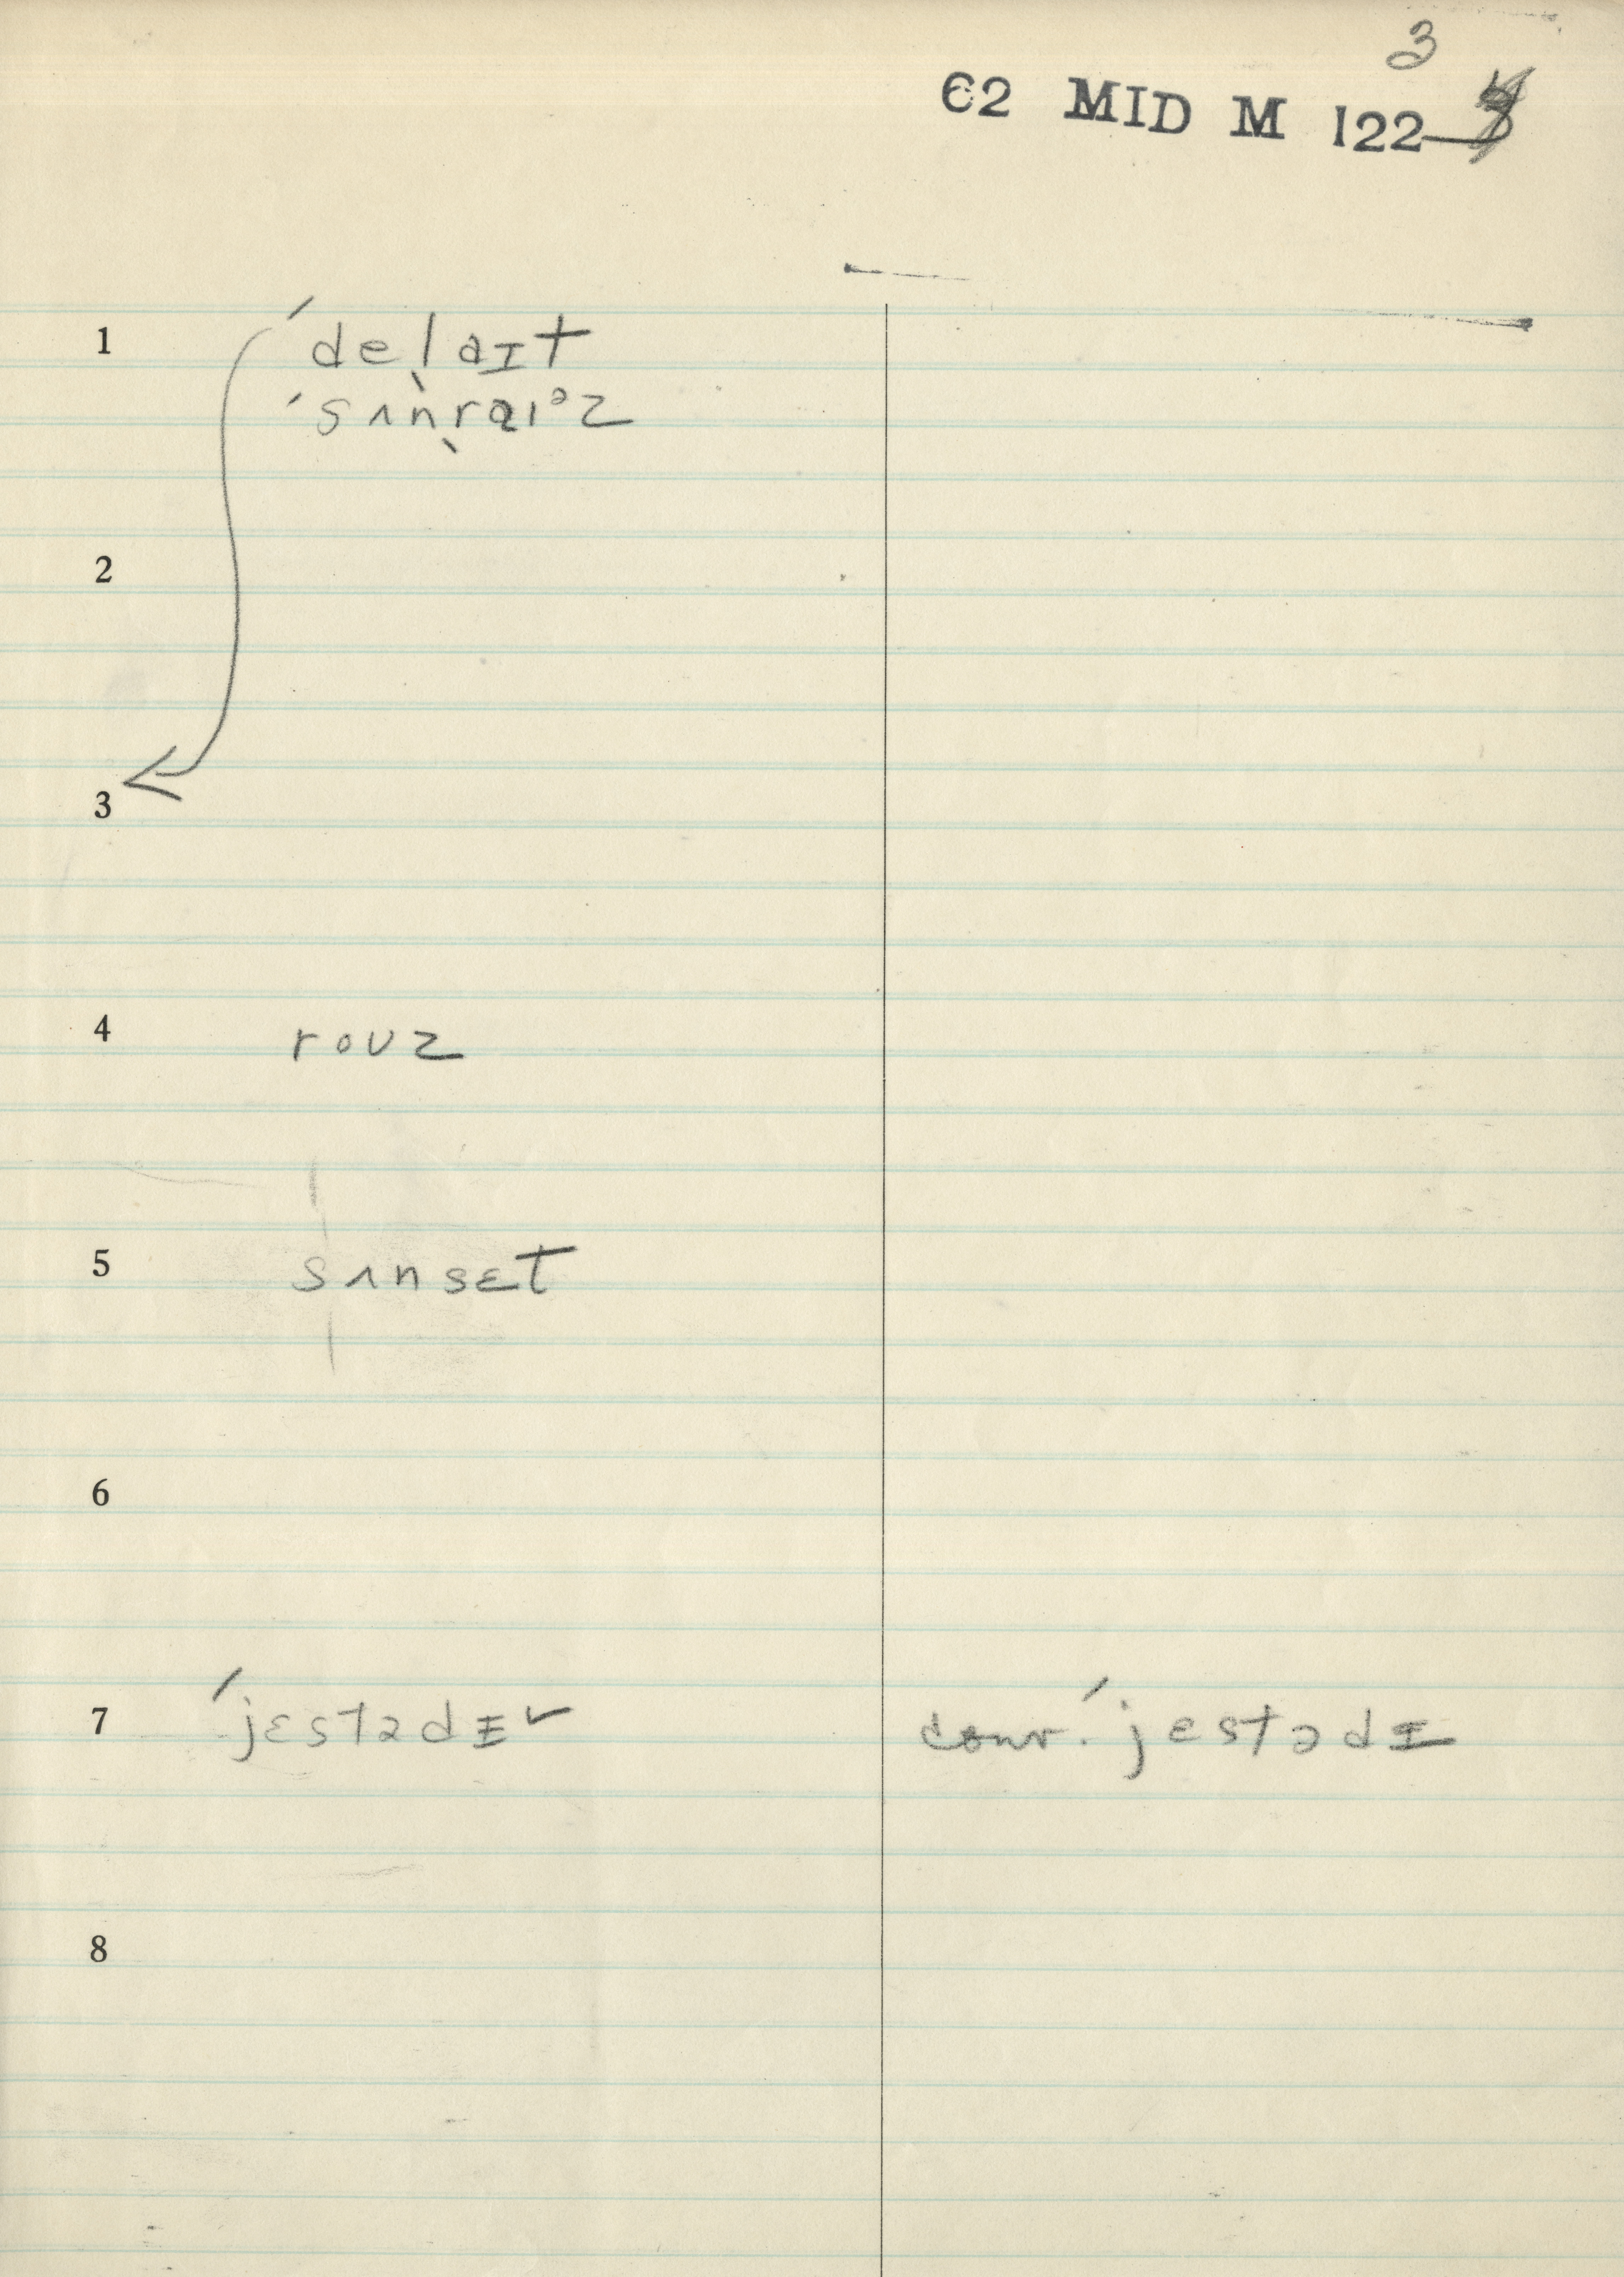 3
62 MID M 122
1 ˈdeˌlaɪt
ˈsʌnˌraiᵊz
2
3
4 roʊz
5 sʌnsɛt
6
7 ˈjɛstədɪ ✓ conv. ˈjɛstədɪ
8